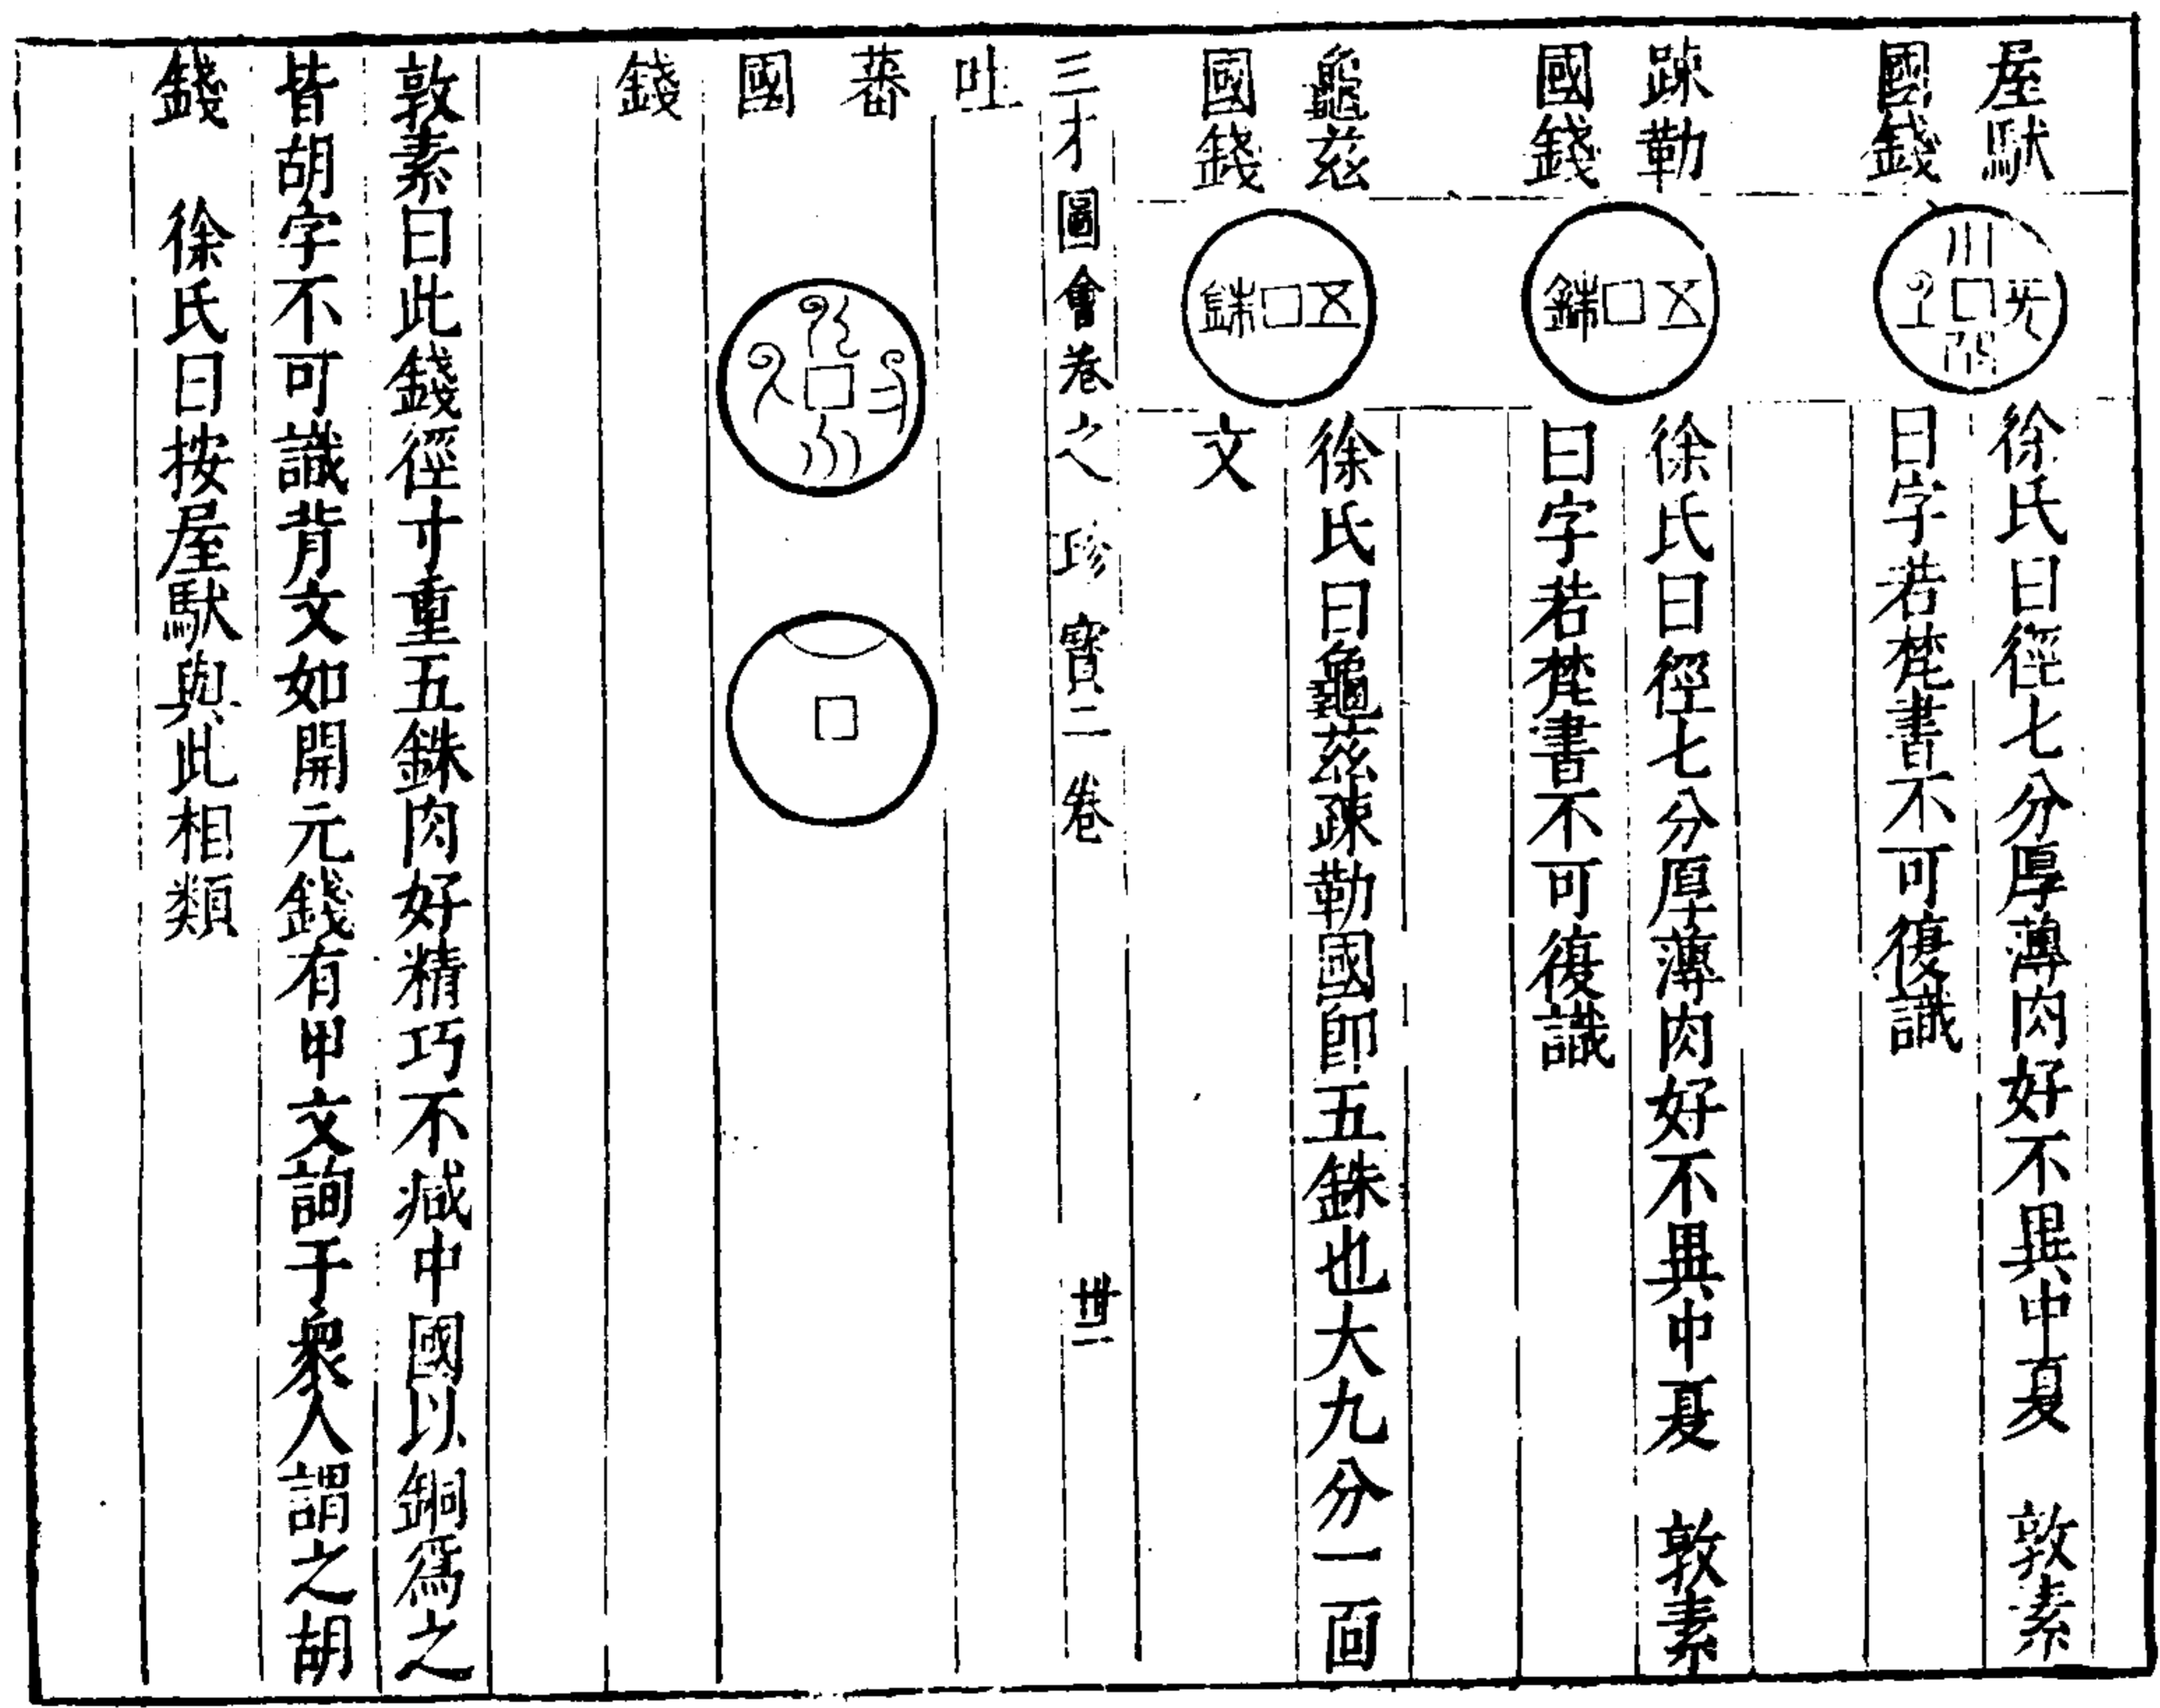 屋䭾
國錢
徐氏曰徑七分厚薄肉好不異中夏　敦素
曰字若梵書不可復識
疎勒
國錢
五銖
徐氏曰徑七分厚薄肉好不異中夏　敦素
曰字若梵書不可復識
龜茲
國錢
五銖
徐氏曰龜茲疎勒國卽五銖也大九分一面
文
三才圖會卷之　珍寶二卷　卅二
吐
蕃
國
錢
敦素曰此錢徑寸重五銖肉好精巧不减中國以銅爲之
皆胡字不可識背文如開元錢有甲文詢于衆人謂之胡
錢　徐氏曰按屋䭾與此相類